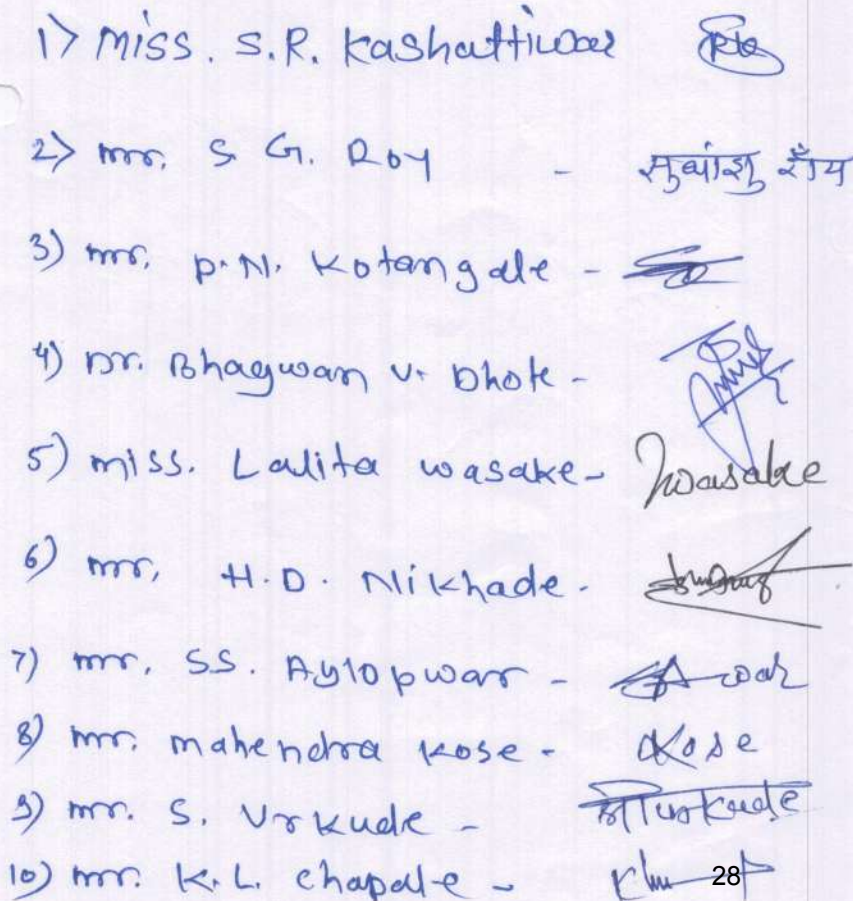 1) Miss. S.R. Kashattiwar
2) mr. S G. Roy - सुधांशु रॉय
3) mr. P.N. Kotangale -
4) Dr. Bhagwan V. Dhote -
5) miss. Lalita wasake - Lwasake
6) mr. H.D. Nikhade -
7) mr. SS. Aylopwar -
8) mr. mahendra kose - Kose
9) mr. S. Urkude -
10) mr. K.L. chapale -
28